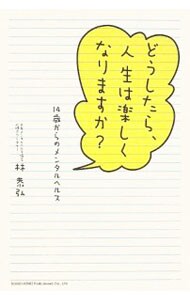 どうしたら、
人生は楽しく
なりますか?
14歳からのメンタルヘルス
林恭弘